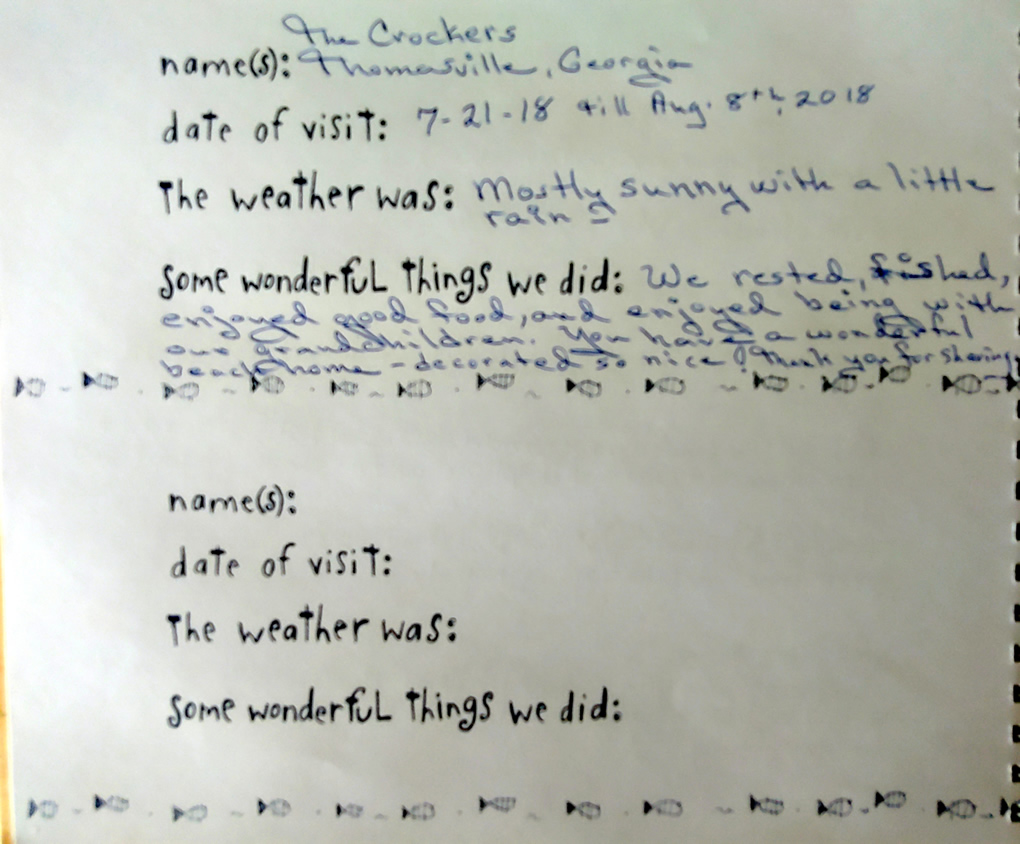 The Crockers
name(s): Thomasville, Georgia
date of visit: 7-21-18 till Aug. 8th, 2018
The weather was: Mostly sunny with a little
rain
Some wonderful things we did: We rested, fished,
enjoyed good food, and enjoyed being with
our grandchildren. You have a wonderful
beach home - decorated so nice! Thank you for sharing
name(s):
date of visit:
The weather was:
Some wonderful things we did: